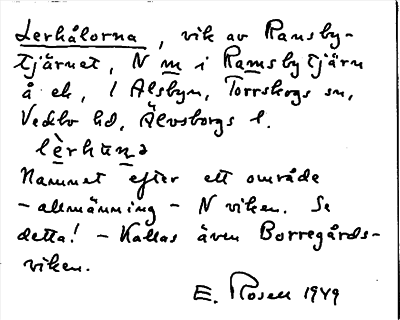 Lerhålorna, vik av Ramsby-
tjärnet, N m i Ramsbytjärn
å ek, i Alsbyn, Torrskogs sn,
Vedbo hd, Älvsborgs l.
lèrhuna
Namnet efter ett område
- allmänning - N viken. Se
detta! - Kallas även Borregårds-
viken.
E. Rosell 1949